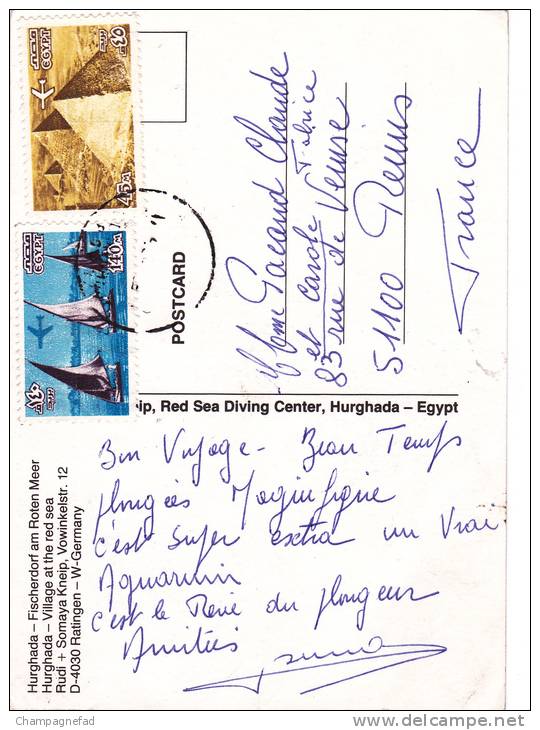 مصر
EGYPT
45M
مصر
EGYPT
140M
POSTCARD
Mme Claude
et Carole Fabrice
83 rue de Venise
51100 Reims
France
eip, Red Sea Diving Center, Hurghada – Egypt
Hurghada – Fischerdorf am Roten Meer
Hurghada – Village at the red sea
Rudi + Somaya Kneip, Vowinkelstr. 12
D-4030 Ratingen – W-Germany
Bon Voyage - Beau Temps
plongées Magnifique
c'est super extra un vrai
Aquarium
c'est le Rêve du plongeur
Amitiés
Champagnefad
delcampe.net